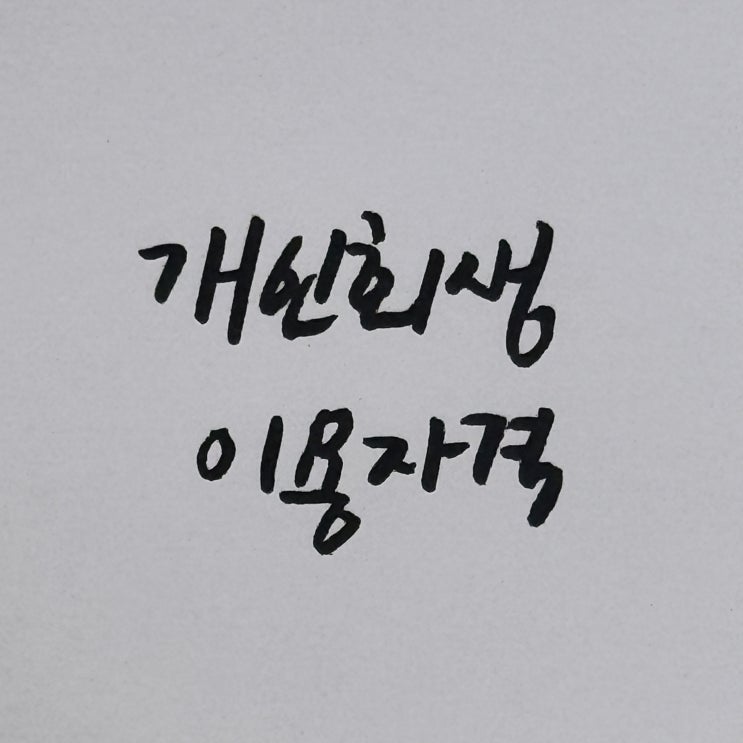 개인회생
이용자격